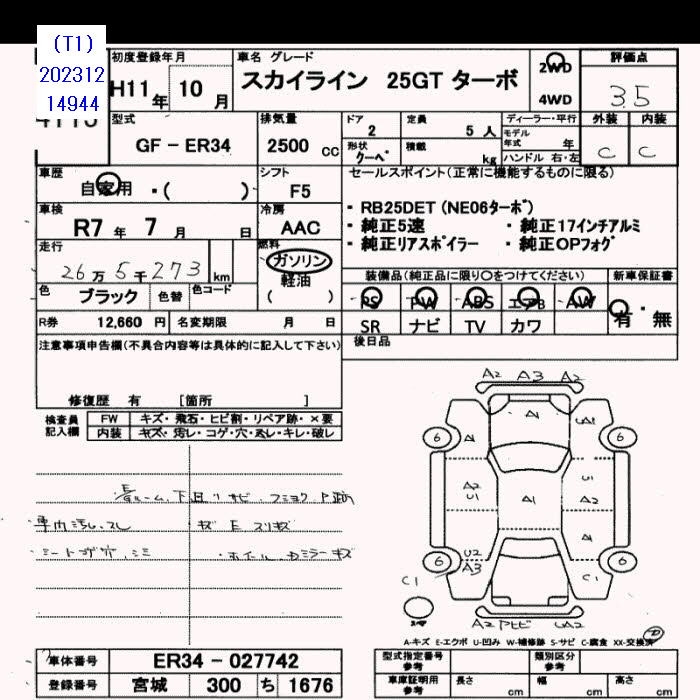 (T1)
202312
14944
初度登録年月
H11年 10月
車名 グレード
スカイライン 25GT ターボ
2WD
4WD
評価点
3.5
型式
GF-ER34
排気量
2500 cc
ドア
2
定員
5 人
形状
クーペ
積載
kg
ディーラー・平行
モデル
年式 年
ハンドル 右・左
外装 内装
C C
車歴
自家用 ・( )
シフト
F5
セールスポイント(正常に機能するものに限る)
・RB25DET (NE06ターボ)
・純正5速 ・純正17インチアルミ
・純正リアスポイラー ・純正OPフォグ
車検
R7 年 7 月 日
冷房
AAC
走行
26万5千273 km
燃料
ガソリン
軽油
( )
装備品(純正品に限り○をつけてください)
新車保証書
PS PW ABS エアB AW
有・無
SR ナビ TV カワ
色
ブラック
色替
色コード
R券 12,660 円
名変期限 月 日
後日品
注意事項申告欄(不具合内容等は具体的に記入して下さい)
修復歴 有 [箇所 ]
検査員
記入欄
FW キズ・飛石・ヒビ割・リペア跡・×要
内装 キズ・汚レ・コゲ・穴・スレ・キレ・破レ
下回りサビ
車内汚レ、スレ
シートコゲ穴、シミ
A2 A3 A2
A1
6 A1 UA1 6
A2
U1
A1
U1
A2
A1
6 U2
A3
C1 6
C1
A2 アトビ UA2
A-キズ E-エクボ U-凹み W-補修跡 S-サビ C-腐食 XX-交換済
車体番号 ER34-027742
登録番号 宮城 300 ち 1676
型式指定番号
参考
類別区分
参考
車庫証明用
参考
長さ cm 幅 cm 高さ cm